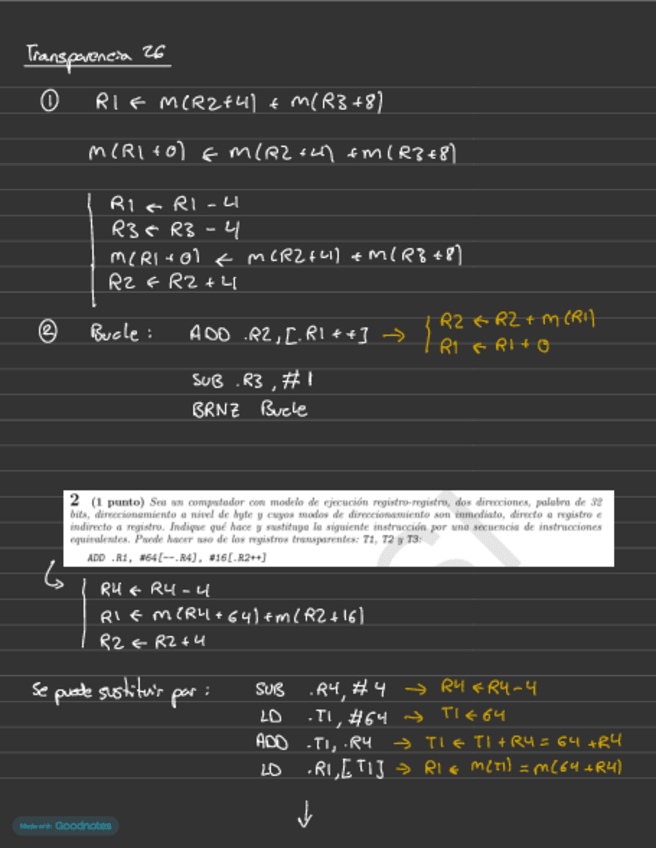 Transparencia 26
① R1 ← M(R2+4) + M(R3+8)
M(R1+0) ← M(R2+4) + M(R3+8)
R1 ← R1 - 4
R3 ← R3 - 4
M(R1+0) ← M(R2+4) + M(R3+8)
R2 ← R2 + 4
② Bucle: ADD .R2,[.R1++] → R2 ← R2 + M(R1)
R1 ← R1 + 0
SUB .R3, #1
BRNZ Bucle
2 (1 punto) Sea un computador con modelo de ejecución registro-registro, dos direcciones, palabra de 32
bits, direccionamiento a nivel de byte y cuyos modos de direccionamiento son inmediato, directo a registro e
indirecto a registro. Indique qué hace y sustituya la siguiente instrucción por una secuencia de instrucciones
equivalentes. Puede hacer uso de los registros transparentes: T1, T2 y T3:
ADD .R1, #64[--.R4], #16[.R2++]
R4 ← R4 - 4
R1 ← M(R4+64)+M(R2+16)
R2 ← R2+4
Se puede sustituir por: SUB .R4, #4 → R4 ← R4-4
LD .T1, #64 → T1 ← 64
ADD .T1, .R4 → T1 ← T1 + R4 = 64 + R4
LD .R1,[.T1] → R1 ← M(T1) = M(64+R4)
↓
Made with Goodnotes